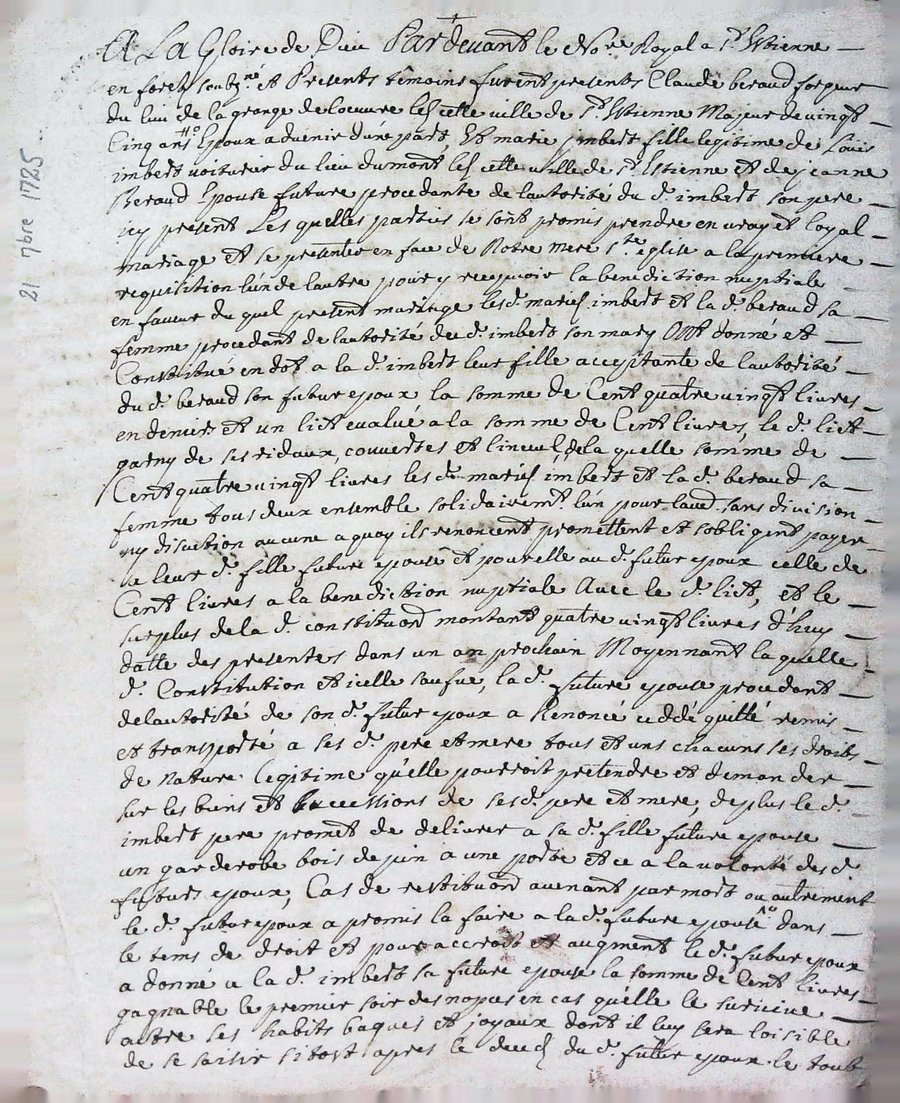 21 7bre 1725
A La Gloire de Dieu Pardevant le No.re Royal a St Etienne
en forest soubz.né et Presents temoins furent presents Claude beraud forgeur
du lieu de la grange de loeuvre les cette ville de St Etienne Majeur de vingt
Cinq ans Epoux advenir d'une part, Et marie imbert fille legitime de Louis
imbert voiturier du lieu dumont les cette ville de St Etienne et de jeanne
Beraud Epouse future procedante de lautorité du d. imbert son pere
icy present Les quelles parties se sont promis prendre en vray et loyal
mariage et se presenter en face de Notre mere Ste église a la premiere
requisition l'un de lautre pour y recepvoir la benediction nuptiale
en faveur du quel present mariage les d. mariés imbert et la d. beraud sa
femme procedant de lautorité du d. imbert son mary Ont donné et
Constitué en dot a la d. imbert leur fille acceptante de lautorité
du d. beraud son futur epoux la somme de Cent quatre vingt livres
en deniers et un lict evalué a la somme de Cent livres, le d. lict
garny de ses ridaux, couvertes et linceul, de la quelle somme de
Cent quatre vingt livres les d. mariés imbert et la d. beraud sa
femme tous deux ensemble solidairemt. l'un pour laud. sans division
ny discution aucune a quoy ils renoncent promettent et sobligent payer
a leur d. fille future epouse et pour elle au d. futur epoux celle de
Cent livres a la benediction nuptiale Avec le d. lict, et le
surplus de la d. constituon montant quatre vingt livres d'huy
datte des presentes dans un an prochain Moyennant la quelle
d. Constitution et icelle saufue, la d. future epouse procedant
de lautorité de son d. futur epoux a Renoncé ceddé quitté remis
et transporté a ses d. pere et mere tous et uns chacuns ses droits
de nature legitime qu'elle pourroit pretendre et demander
sur les biens et successions de ses d. pere et mere, deplus le d.
imbert pere promet de delivrer a sa d. fille future epouse
un garderobe bois de pin a une porte et ce a la volonté des d.
futurs epoux, Cas de restituon avenant par mort ou autrement
le d. futur epoux a promis la faire a la d. future epouse dans
le tems de droit et pour accroit et augment le d. futur epoux
a donné a la d. imbert sa future epouse la somme de Cent livres
gagnable le premier soir des nopces en cas qu'elle le survive
outre ses habits bagues et joyaux dont il luy sera loisible
de se saisir sitost apres le deces du d. futur epoux le tout